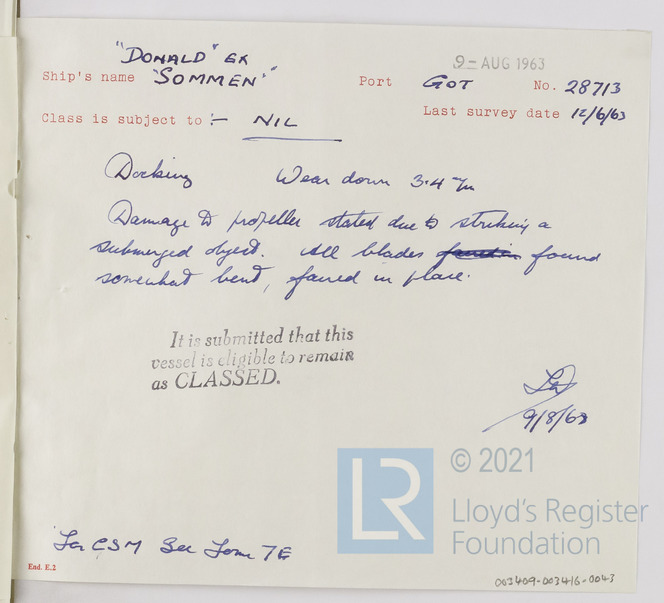 "DONALD" EX
9 - AUG 1963
Ship's name "SOMMEN"
Port GOT No. 28713
Last survey date 12/6/63
Class is subject to :- NIL
Docking Wear down 3.4 m/m
Damage to propeller stated due to striking a
submerged object. All blades found
somewhat bent, faired in place.
It is submitted that this
vessel is eligible to remain
as CLASSED.
9/8/63
© 2021
LR
Lloyd's Register
Foundation
For CSM See Form 7E
End. E.2
003409-003416-0043